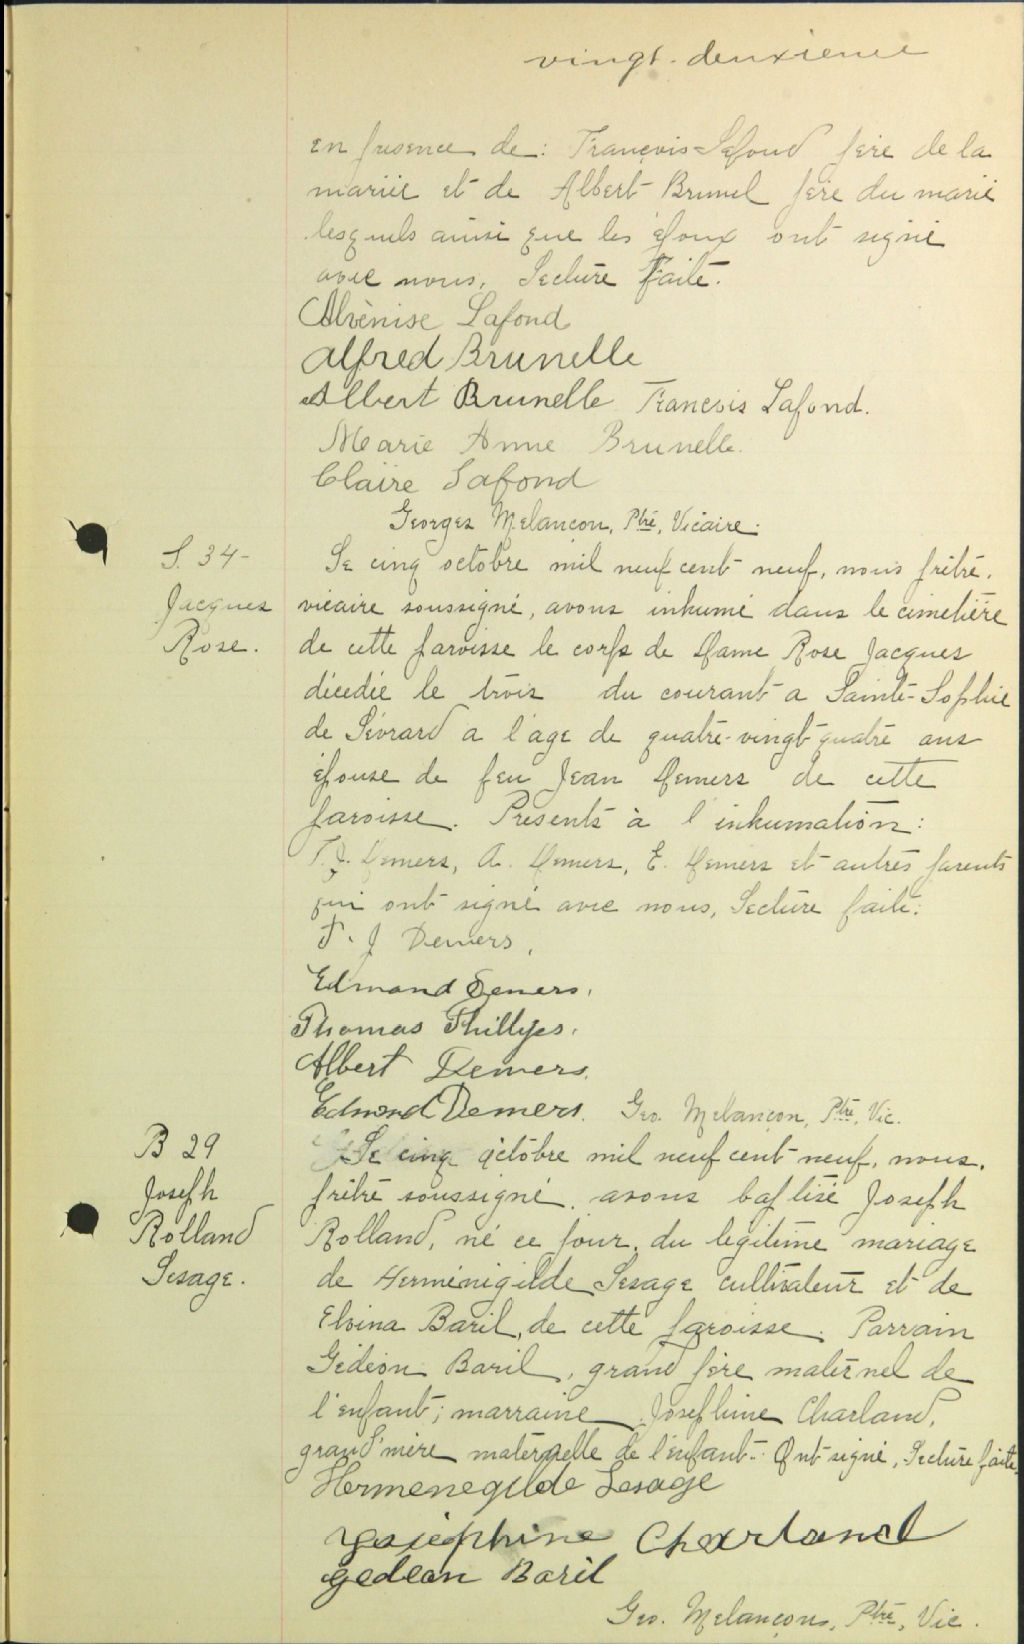 vingt-deuxieme
en présence de: François Lafond père de la
mariée et de Albert Brunel père du marié
lesquels ainsi que les époux ont signé
avec nous. Lecture faite.
Alvènise Lafond
Alfred Brunelle
Albert Brunelle François Lafond.
Marie Anne Brunelle.
Claire Lafond
Georges Melançon, Ptre, Vicaire.
S. 34-
Jacques
Rose.
Le cinq octobre mil neuf cent neuf, nous prêtre,
vicaire soussigné, avons inhumé dans le cimetière
de cette paroisse le corps de Dame Rose Jacques
décédée le trois du courant a Sainte-Sophie
de Lévrard a l'age de quatre-vingt-quatre ans
épouse de feu Jean Demers de cette
paroisse. Présents à l'inhumation:
T.J. Demers, A. Demers, E. Demers et autres parents
qui ont signé avec nous, Lecture faite.
T. J Demers,
Edmond Demers.
Thomas Phillyes.
Albert Demers.
Edmond Demers. Geo. Melançon, Ptre, Vic.
B 29
Joseph
Rolland
Lesage.
Le cinq octobre mil neuf cent neuf, nous,
prêtre soussigné, avons baptisé Joseph
Rolland, né ce jour, du légitime mariage
de Herménigilde Lesage cultivateur et de
Elvina Baril, de cette paroisse. Parrain
Gédéon Baril, grand père maternel de
l'enfant; marraine Joséphine Charland,
grand'mère maternelle de l'enfant. Ont signé, Lecture faite.
Hermenegilde Lesage
Josephine Charland
gedeon Baril
Geo. Melançon, Ptre, Vic.